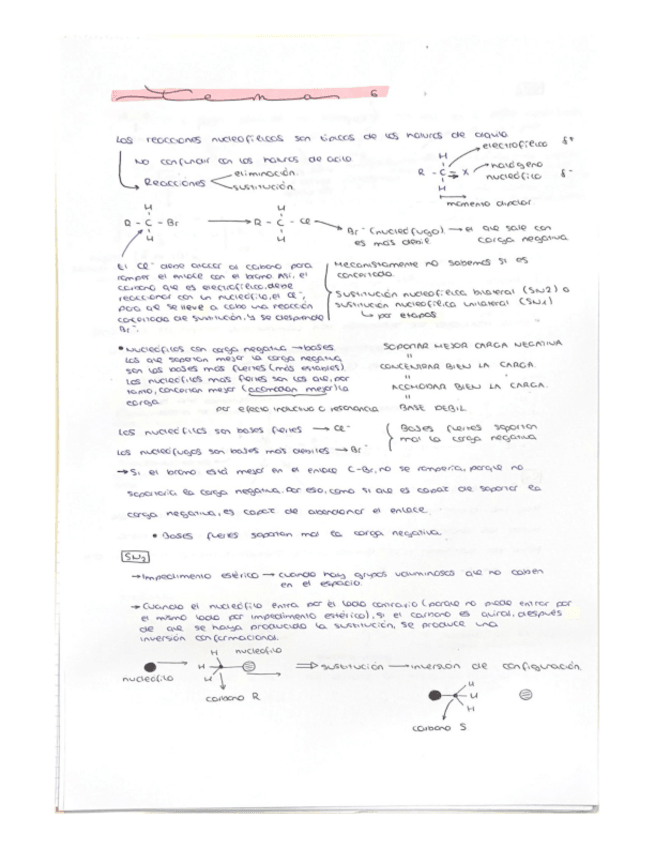 Tema 6
Las reacciones nucleofílicas son típicas de los haluros de alquilo
No confundir con los haluros de acilo
Reacciones
eliminación
sustitución
H
R - C - X
H
electrofílico δ+
halógeno
nucleófilo δ-
momento dipolar
H
R - C - Br
H
H
R - C - Cl
H
Br⁻ (nucleófugo) → el que sale con
es más débil carga negativa
El Cl⁻ debe atacar al carbono para
romper el enlace con el bromo. Así, el
carbono que es electrofílico, debe
reaccionar con un nucleófilo, el Cl⁻,
para que se lleve a cabo una reacción
concertada de sustitución, y se desprende
Br⁻.
Mecanísticamente no sabemos si es
concertada
Sustitución nucleofílica bilateral (SN2) o
sustitución nucleofílica unilateral (SN1)
por etapas
• Nucleófilos con carga negativa → bases
Los que soportan mejor la carga negativa
son las bases más fuertes (más estables).
Los nucleófilos más fuertes son los que, por
tanto, mejor (acomodan mejor) la
carga
por efecto inductivo o resonancia
SOPORTAR MEJOR CARGA NEGATIVA
"
CONCENTRAR BIEN LA CARGA.
"
ACOMODAR BIEN LA CARGA.
"
BASE DEBIL
Los nucleófilos son bases fuertes → Cl⁻
Los nucleófugos son bases más débiles → Br⁻
Bases fuertes soportan
mal la carga negativa
→ Si el bromo está mejor en el enlace C-Br, no se rompería, porque no
soportaría la carga negativa. Por eso, como si que es capaz de soportar la
carga negativa, es capaz de abandonar el enlace.
• Bases fuertes soportan mal la carga negativa.
SN2
→ Impedimento estérico → cuando hay grupos voluminosos que no caben
en el espacio
→ Cuando el nucleófilo entra por el lado contrario (porque no puede entrar por
el mismo lado por impedimento estérico), si el carbono es quiral, después
de que se haya producido la sustitución, se produce una
inversión conformacional.
nucleófilo
H
H
H
nucleófilo
carbono R
⇒ sustitución → inversión de configuración
H
H
H
carbono S